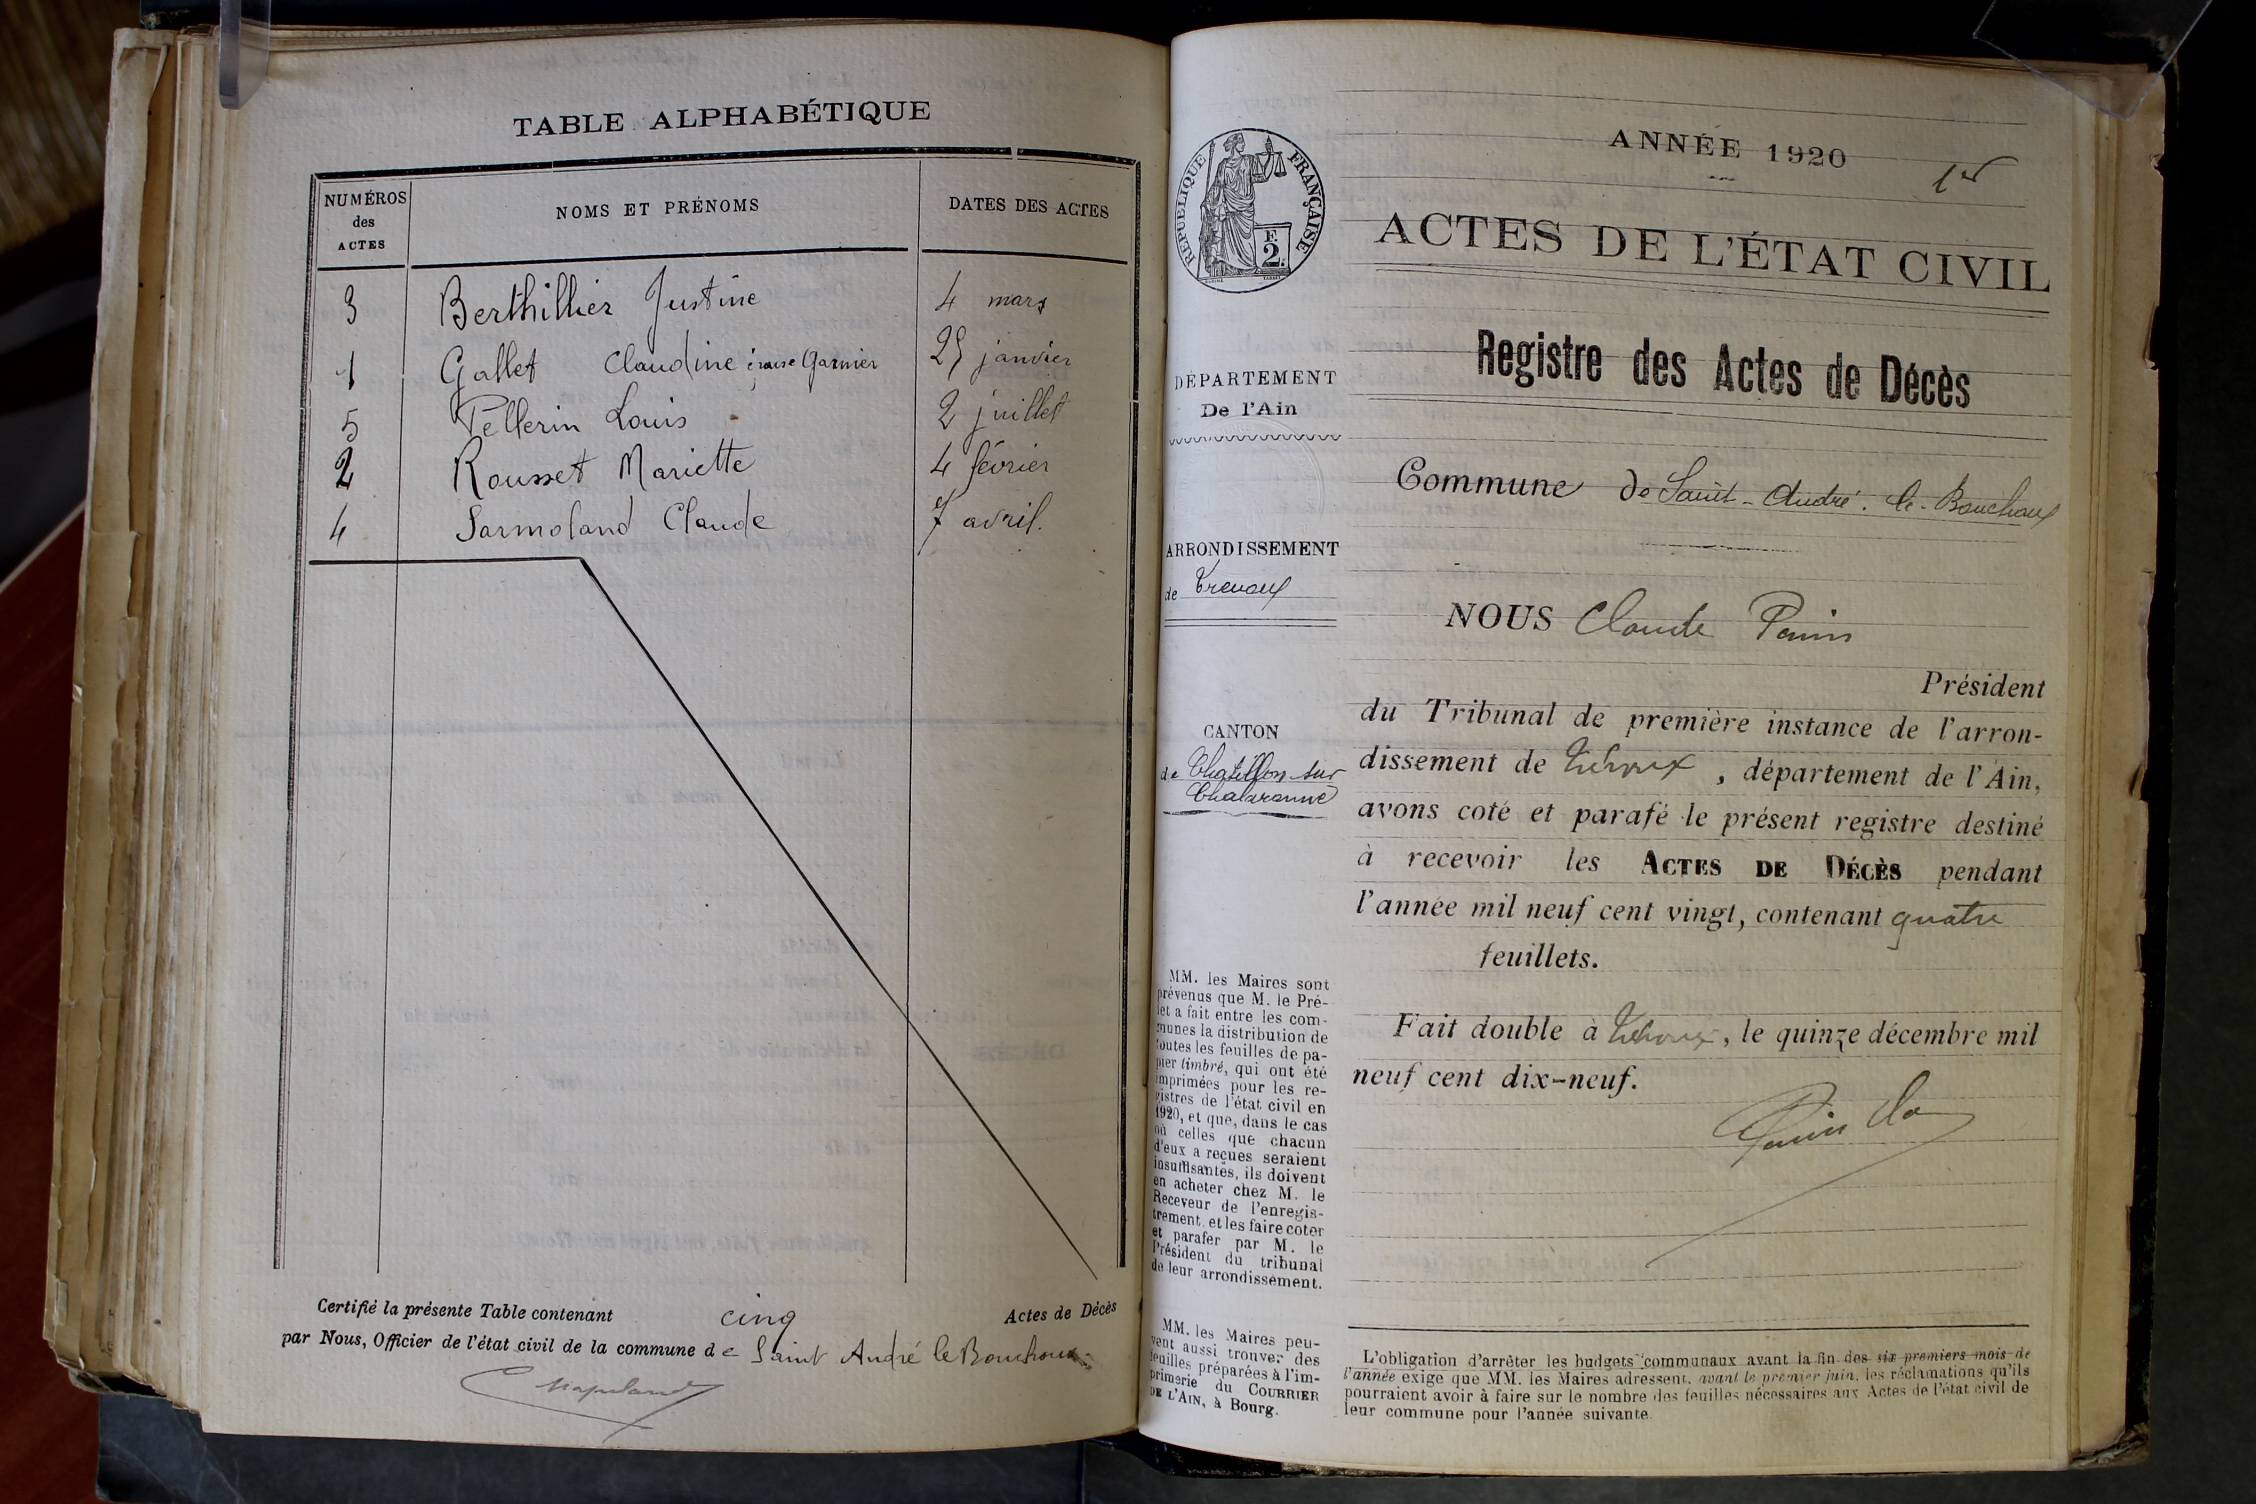 TABLE ALPHABÉTIQUE
NUMÉROS
des
ACTES
NOMS ET PRÉNOMS
DATES DES ACTES
3 Berthillier Justine 4 mars
1 Gallet Claudine épouse Garnier 25 janvier
5 Pellerin Louis 2 juillet
2 Rousset Mariette 4 février
4 Sarmoland Claude 7 avril.
Certifié la présente Table contenant cinq Actes de Décès
par Nous, Officier de l'état civil de la commune de Saint André le Bouchoux
RÉPUBLIQUE FRANÇAISE
F.
2.
DÉPARTEMENT
De l'Ain
ARRONDISSEMENT
de Trevoux
CANTON
de Chatillon-sur
Chalaronne
MM. les Maires sont
prévenus que M. le Pré-
fet a fait entre les com-
munes la distribution de
toutes les feuilles de pa-
pier timbré, qui ont été
imprimées pour les re-
gistres de l'état civil en
1920, et que, dans le cas
où celles que chacun
d'eux a reçues seraient
insuffisantes, ils doivent
en acheter chez M. le
Receveur de l'enregis-
trement, et les faire coter
et parafer par M. le
Président du tribunal
de leur arrondissement.
MM. les Maires peu-
vent aussi trouver des
feuilles préparées à l'im-
primerie du COURRIER
DE L'AIN, à Bourg.
ANNÉE 1920
1er
ACTES DE L'ÉTAT CIVIL
Registre des Actes de Décès
Commune de Saint-André-le-Bouchoux
NOUS Claude Perrin
Président
du Tribunal de première instance de l'arron-
dissement de Trévoux, département de l'Ain,
avons coté et parafé le présent registre destiné
à recevoir les ACTES DE DÉCÈS pendant
l'année mil neuf cent vingt, contenant quatre
feuillets.
Fait double à Trévoux, le quinze décembre mil
neuf cent dix-neuf.
L'obligation d'arrêter les budgets communaux avant la fin des six premiers mois de
l'année exige que MM. les Maires adressent, avant le premier juin, les réclamations qu'ils
pourraient avoir à faire sur le nombre des feuilles nécessaires aux Actes de l'état civil de
leur commune pour l'année suivante.